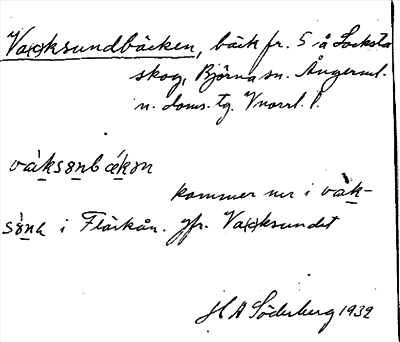 Va(x)ksundbäcken, bäck fr. S å Locksta
skog, Björna sn. Ångerml.
n. doms. tg. Vnorrl. l.
vàksɵnbǽkɵn
kommer ner i vàk-
sɵ̀na i Flärkån. Jfr. Va(x)ksundet
H A Söderberg 1932